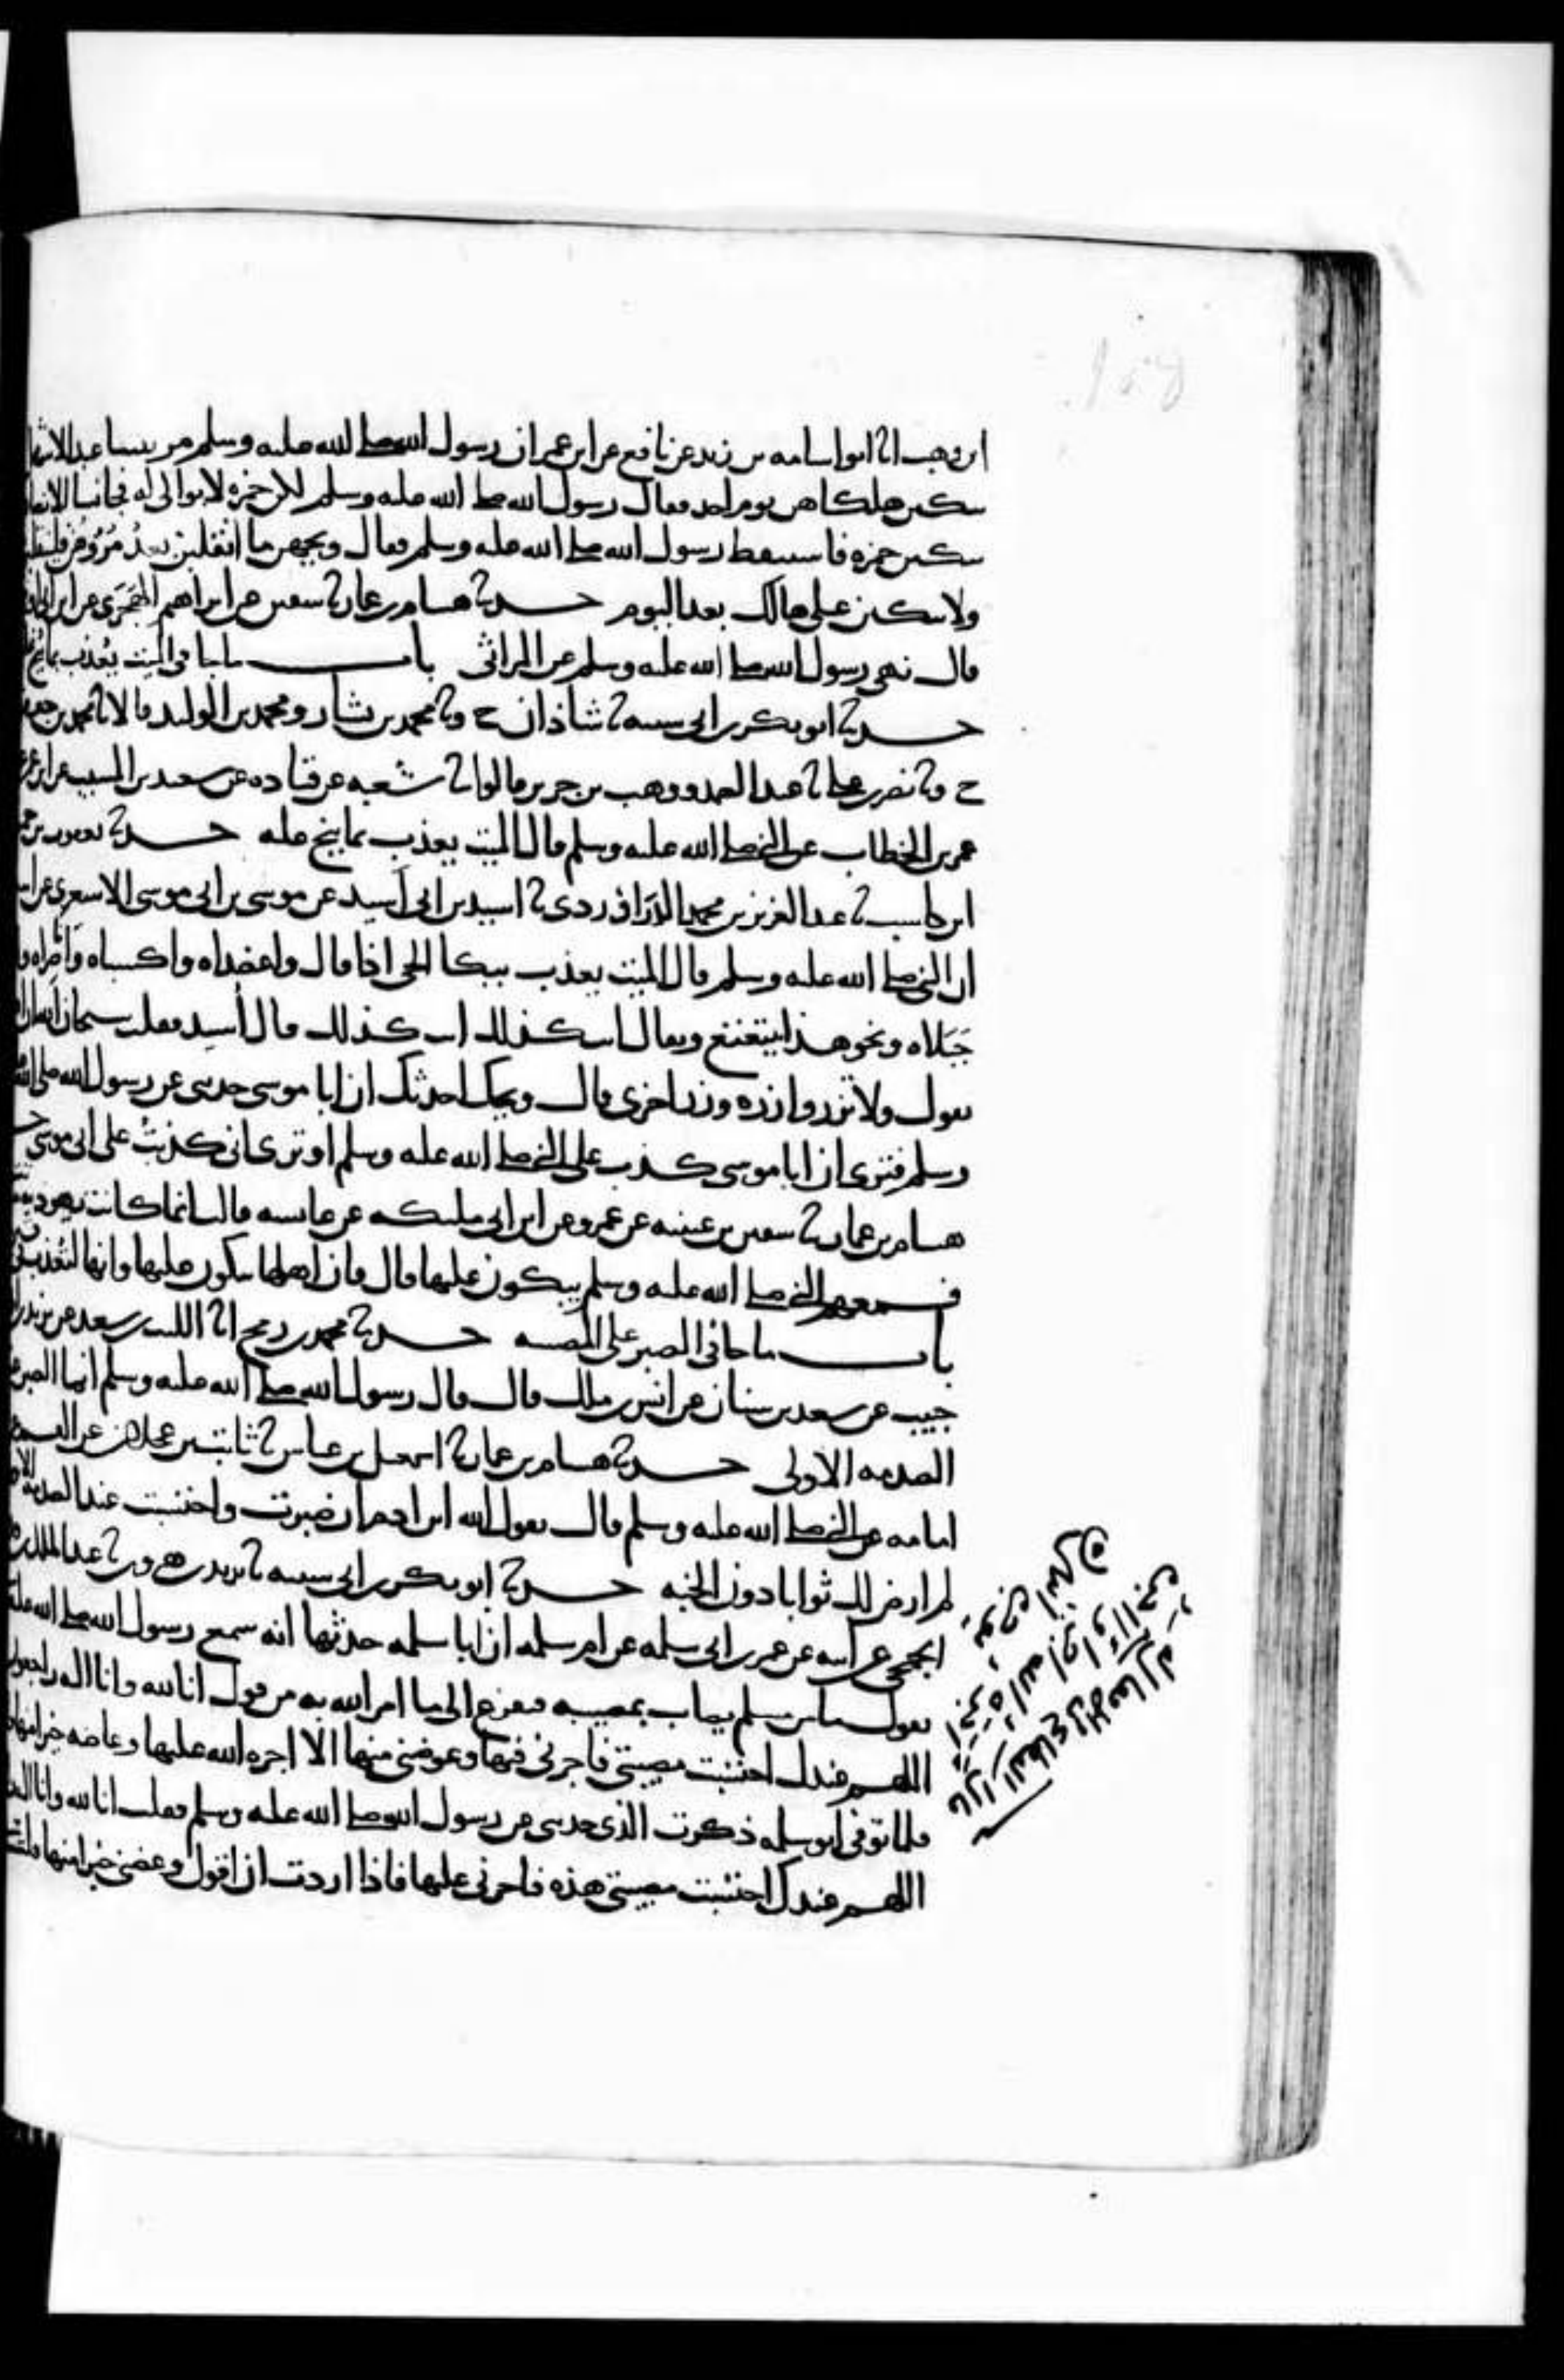 ابن وهب انا ابو اسامه بن زيد عن نافع عن ابن عمر ان رسول الله صلى الله عليه وسلم مر بنسا عبد الاشهل
يبكين هلكاهن يوم احد فقال رسول الله صلى الله عليه وسلم لكن حمزه لا بواكي له فجا نسا الانصار
يبكين حمزه فاستيقظ رسول الله صلى الله عليه وسلم فقال ويحهن ما انقلبن بعد مروهن فلينقلبن
ولا يبكين على هالك بعد اليوم حدثنا هشام بن عمار ثنا سفين عن ابراهيم الهجري عن ابن ابي اوفى
قال نهى رسول الله صلى الله عليه وسلم عن المراثي باب ما جا في الميت يعذب بما نيح
حدثنا ابو بكر بن ابي شيبه ثنا شاذان ح وثنا محمد بن بشار ومحمد بن الوليد قالا ثنا محمد بن جعفر
ح وثنا نصر بن علي ثنا عبد الصمد ووهب بن جرير قالوا ثنا شعبه عن قتاده عن سعيد بن المسيب عن ابن عمر عن
عمر بن الخطاب عن النبي صلى الله عليه وسلم قال الميت يعذب بما نيح عليه حدثنا يعقوب بن حميد
ابن كاسب ثنا عبد العزيز بن محمد الدراوردي ثنا اسيد بن ابي اسيد عن موسى بن ابي موسى الاشعري عن ابيه
ان النبي صلى الله عليه وسلم قال الميت يعذب ببكا الحي اذا قال واعضداه واكسياه واناصراه وا
جبلاه ونحو هذا يتعتع ويقال انت كذلك انت كذلك قال اسيد فقلت سبحان الله ان الله
يقول ولا تزر وازره وزر اخرى قال ويحك احدثك ان ابا موسى حدثني عن رسول الله صلى الله عليه
وسلم فترى ان ابا موسى كذب على النبي صلى الله عليه وسلم او ترى اني كذبت على ابي موسى حدثنا
هشام بن عمار ثنا سفين بن عيينه عن عمرو عن ابن ابي مليكه عن عايشه قالت انما كانت يهوديه
فسمعهم النبي صلى الله عليه وسلم يبكون عليها قال فان اهلها يبكون عليها وانها لتعذب في
باب ما جا في الصبر على المصيبه حدثنا محمد بن رمح انا الليث بن سعد عن يزيد بن ابي
حبيب عن سعد بن سنان عن انس بن ملك قال قال رسول الله صلى الله عليه وسلم انما الصبر عند
الصدمه الاولى حدثنا هشام بن عمار ثنا اسمعيل بن عياش ثنا ثابت بن عجلان عن القسم عن
امامه عن النبي صلى الله عليه وسلم قال يقول الله ابن ادم ان صبرت واحتسبت عند الصدمه الاولى
لم ارض لك ثوابا دون الجنه حدثنا ابو بكر بن ابي شيبه ثنا يزيد بن هرون ثنا عبد الملك بن
الجمحي عن ابيه عن عمر بن ابي سلمه عن ام سلمه ان ابا سلمه حدثها انه سمع رسول الله صلى الله عليه
يقول ما من مسلم يصاب بمصيبه فيفزع الى ما امر الله به من قول انا لله وانا اليه راجعون
اللهم عندك احتسبت مصيبتي فاجرني فيها وعوضني منها الا اجره الله عليها وعاضه خيرا منها
فلما توفي ابو سلمه ذكرت الذي حدثني عن رسول الله صلى الله عليه وسلم فقلت انا لله وانا اليه
اللهم عندك احتسبت مصيبتي هذه فاجرني عليها فاذا اردت ان اقول وعضني خيرا منها قلت